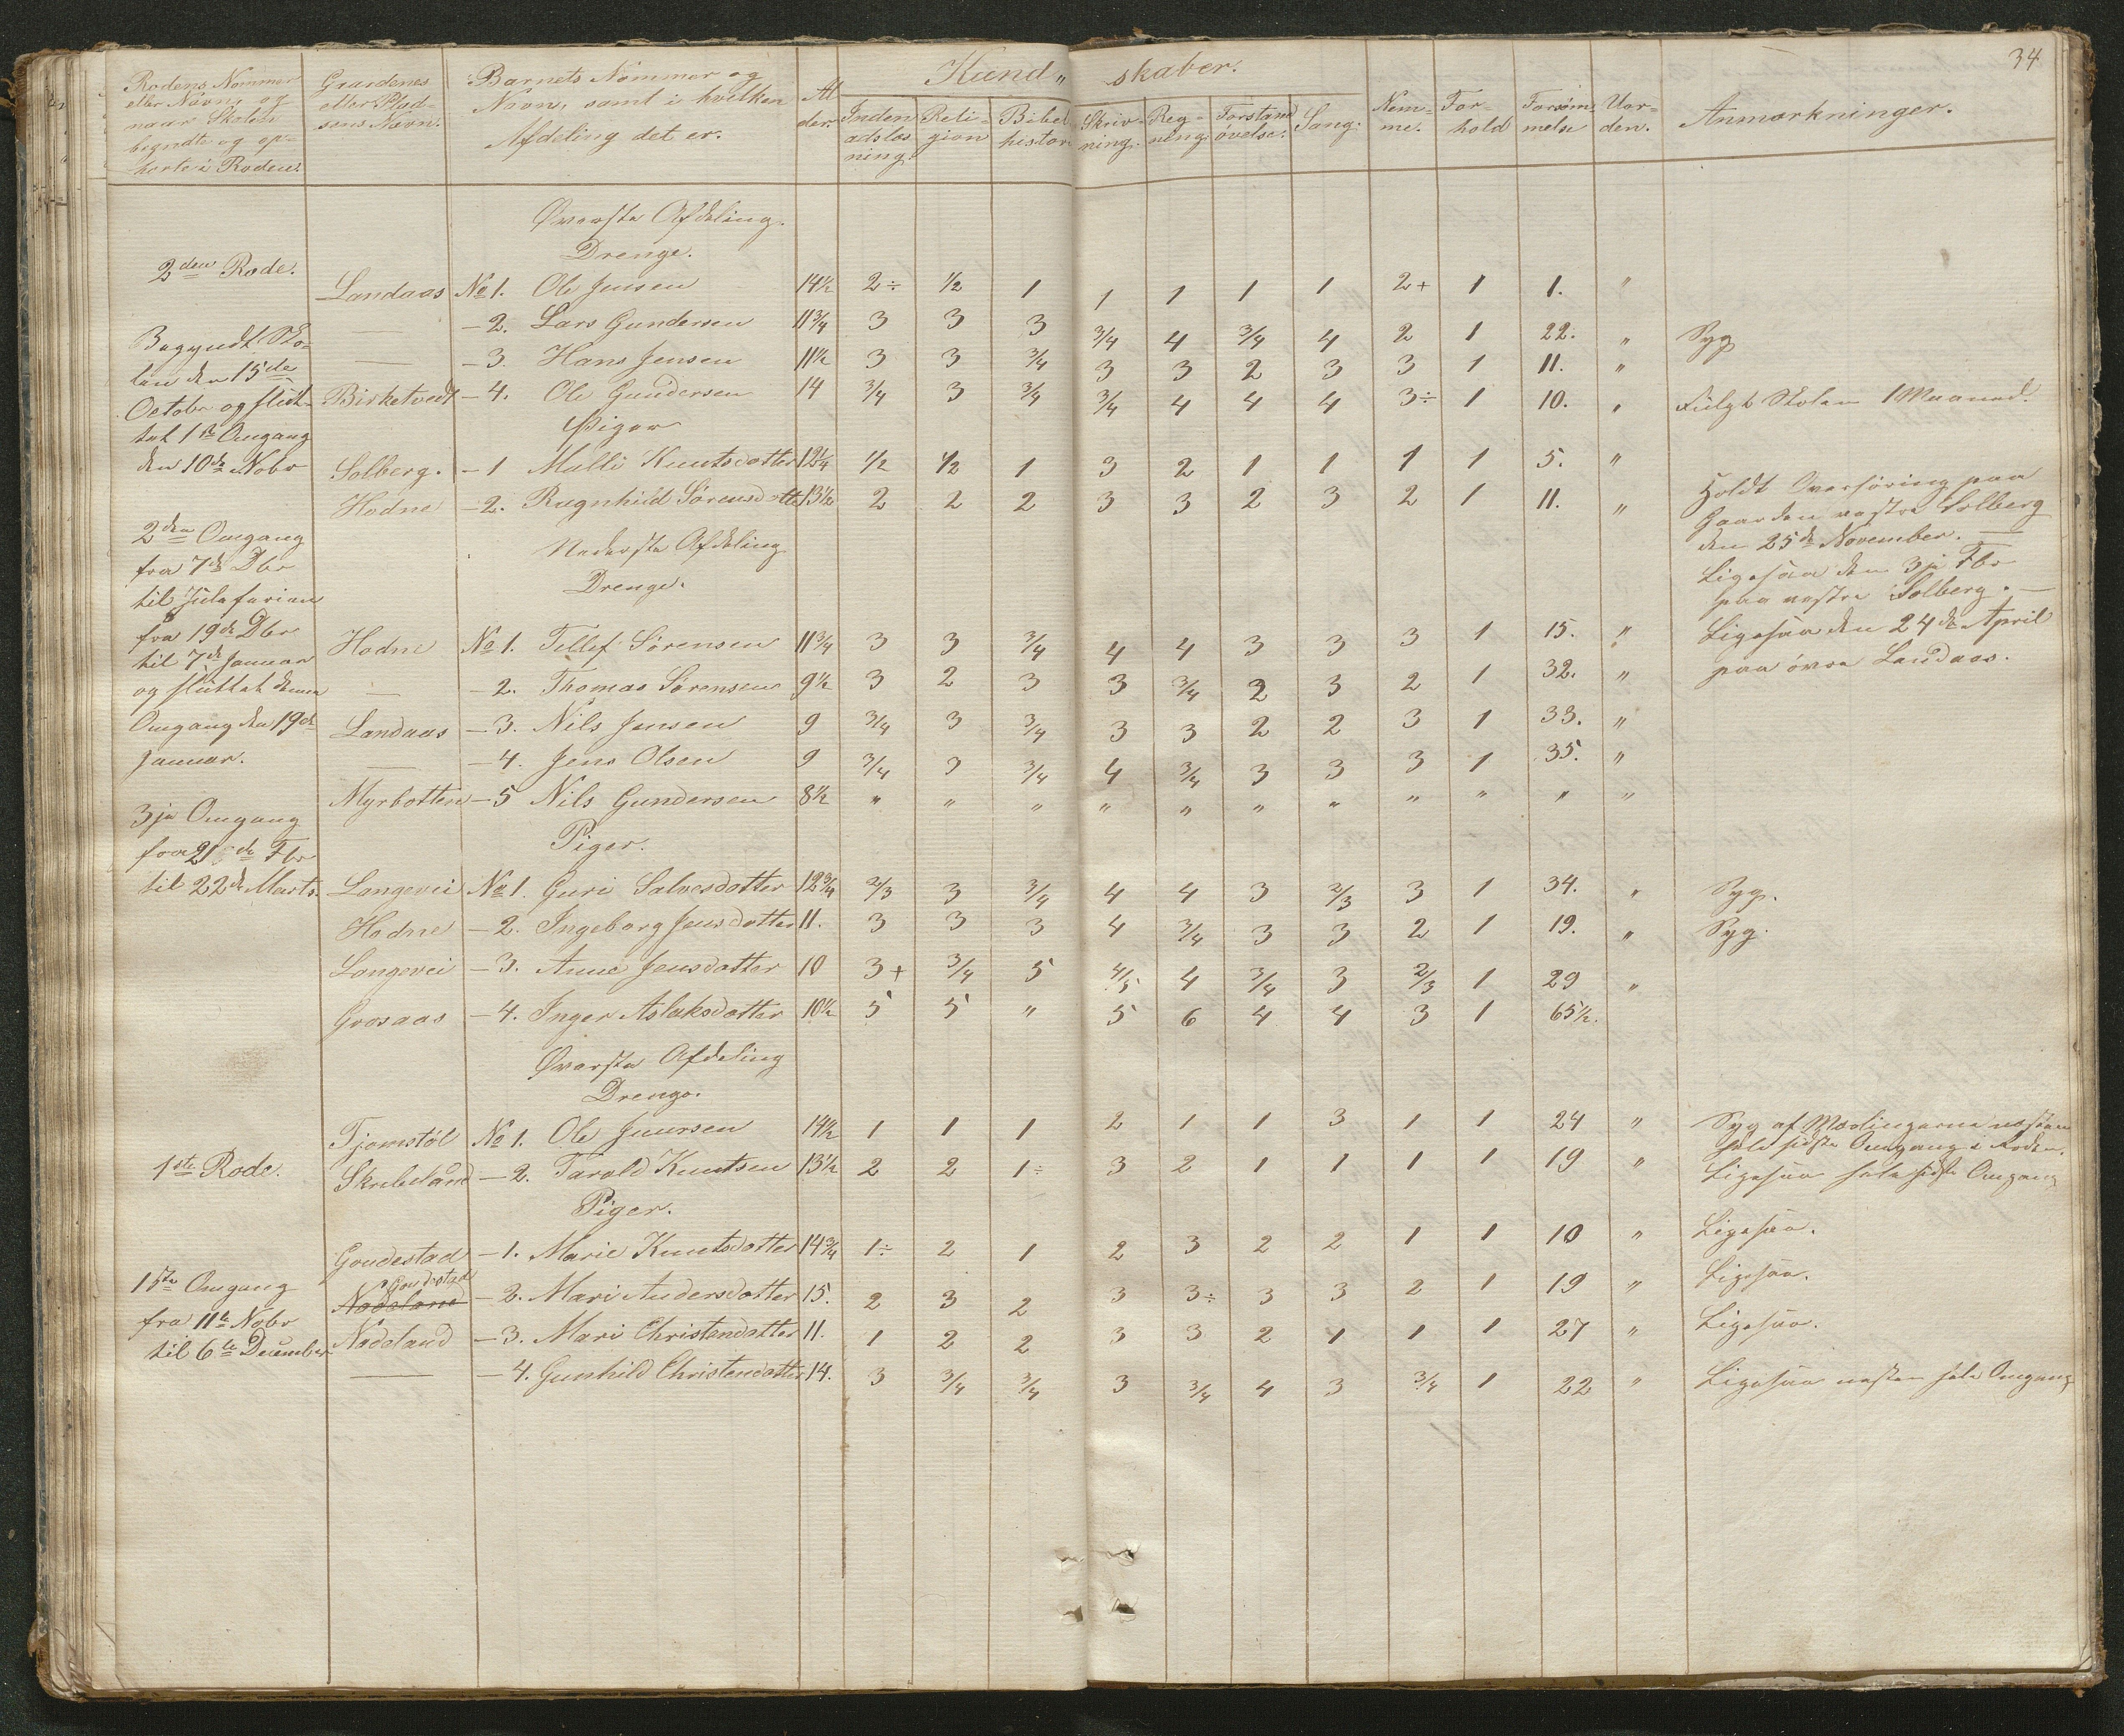 34
Rodens Nommer eller Navn, og naar Skolen begyndte og ophorte i Roden.
Gaardenes eller Pladsens Navn.
Barnets Nommer og Navn, samt i hvilken Afdeling det er.
Alder.
Kund„ skaber.
Inden adslæsning.
Religion
Bibelhistor.
Skrivning.
Regning.
Forstandøvelse.
Sang.
Nemme.
Forhold
Forsømmelse
Uorden.
Anmærkninger.
Øverste Afdeling.
Drenge.
2den Rode.
Landaas No 1. Ole Jensen 14½ 2÷ ½ 1 1 1 1 1 2+ 1 1. "
— - 2. Lars Gundersen 11¾ 3 3 3 3/4 4 3/4 4 2 1 22. " Syg
— - 3. Hans Jensen 11½ 3 3 3/4 3 3 2 3 3 1 11. "
Birketvedt - 4. Ole Gundersen 14 3/4 3 3/4 3/4 4 4 4 3÷ 1 10. " Fulgt Skolen 1 Maaned.
Begyndt Skolen den 15de
October og sluttet 1ste Omgang
den 10de Nobr
Piger
Solberg. - 1 Malli Knutsdotter 12¼ 1/2 1/2 1 3 2 1 1 1 1 5. "
Hodne - 2. Ragnhild Sørensdotter 13½ 2 2 2 3 3 2 3 2 1 11. "
Holdt Overhøring paa
Gaarden vestre Solberg
den 25de November. —
Ligesaa den 3je Fbr
paa vestre Solberg. —
Ligesaa den 24de April
paa øvre Landaas.
2den Omgang
fra 7de Dbr
til Juleferien
fra 19de Dbr
til 7de Januar
og sluttet denne
Omgang den 19de
Januar.
Nederste Afdeling
Drenge.
Hodne No 1. Tellef Sørensen 11¾ 3 3 3/4 4 4 3 3 3 1 15. "
— - 2. Thomas Sørensen 9½ 3 2 3 3 3/4 2 3 2 1 32. "
Landaas - 3. Nils Jensen 9 3/4 3 3/4 3 3 2 2 3 1 33. "
— - 4. Jens Olsen 9 3/4 3 3/4 4 3/4 3 3 3 1 35. "
Myrbotten - 5 Nils Gundersen 8½ " " " " " " " " " " "
3je Omgang
fra 21de Fbr
til 22de Marts.
Piger.
Langevei No 1. Guri Salvesdotter 12¾ 2/3 3 3/4 4 4 3 2/3 3 1 34. " Syg.
Hodne - 2. Ingeborg Jensdotter 11. 3 3 3 4 3/4 3 3 2 1 19. " Syg.
Langevei - 3. Anne Jensdatter 10 3+ 3/4 5 4/5 4 3/4 3 2/3 1 29 "
Grosaas - 4. Inger Aslaksdotter 10½ 5 5 " 5 6 4 4 3 1 65½.
Øverste Afdeling
Drenge.
1ste Rode.
Tjomstøl No 1. Ole Juursen 14½ 1 1 1 2 1 1 3 1 1 24 " Syg af Mæslingerne næsten
hele sidste Omgang i Roden.
Skribeland - 2. Tarald Knutsen 13½ 2 2 1÷ 3 2 1 1 1 1 19 " Ligesaa hele sidste Omgang
Piger.
Goudestad - 1. Marie Knutsdotter 14¾ 1÷ 2 1 2 3 2 2 1 1 10 " Ligesaa.
Nodeland Goudestad - 2. Mari Andersdotter 15. 2 3 2 3 3÷ 3 3 2 1 19 " Ligesaa.
Nodeland - 3. Mari Christendatter 11. 1 2 2 3 3 2 1 1 1 27 " Ligesaa.
— - 4. Gunhild Christendatter 14. 3 3/4 3/4 3 3/4 4 3 3/4 1 22 " Ligesaa næsten hele Omgang
1ste Omgang
fra 11te Nobr
til 6te December